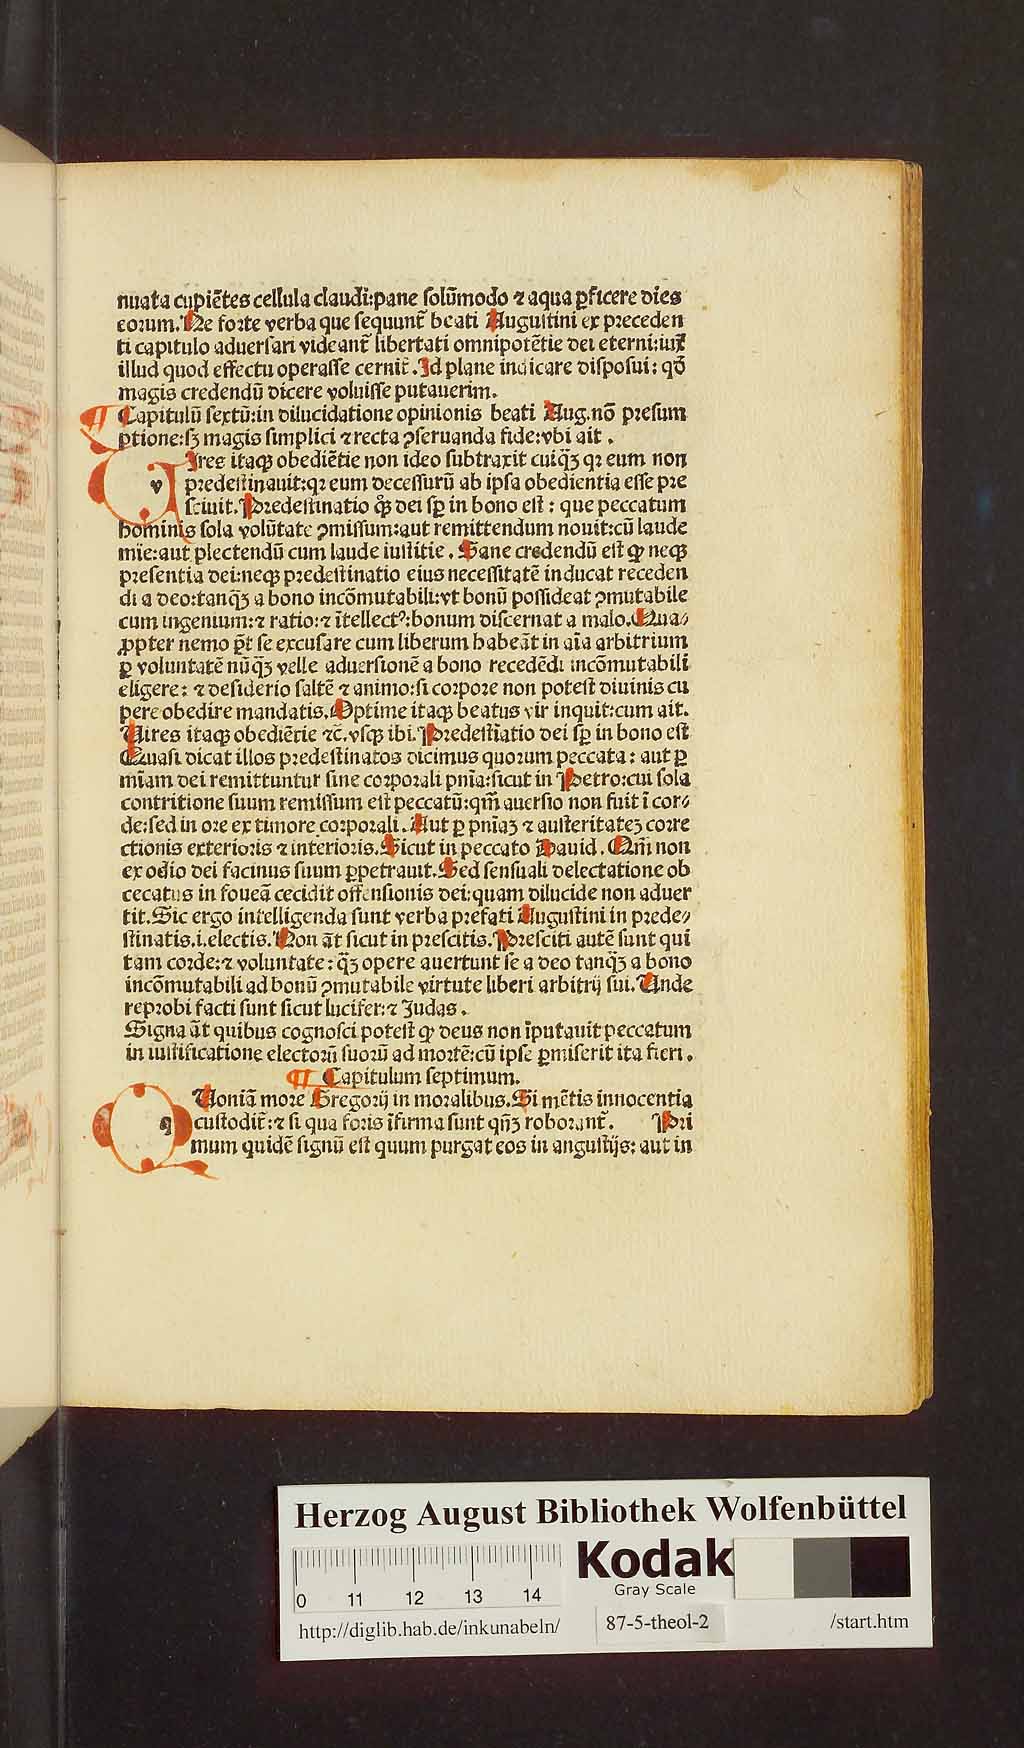 nuata cupiētes cellula claudi:pane solūmodo ⁊ aqua ꝑficere dies
eorum. Ne forte verba que sequunt᷑ beati Augustini ex preceden
ti capitulo aduersari videant᷑ libertati omnipotētie dei eterni:iux̄
illud quod effectu operasse cernit᷑. Id plane indicare disposui: qđ
magis credendū dicere voluisse putauerim.
¶ Capitulū sextū:in dilucidatione opinionis beati Aug.nō presum
ptione:sꝫ magis simplici ⁊ recta ꝯseruanda fide:vbi ait.
v Ires itaqꝫ obediētie non ideo subtraxit cuiq̄ꝫ qꝛ eum non
predestinauit:qꝛ eum decessurū ab ipsa obedientia esse pre
sciuit. Predestinatio qͦꝫ dei sꝑ in bono est: que peccatum
hominis sola volūtate ꝯmissum:aut remittendum nouit:cū laude
mie:aut plectendū cum laude iustitie. Sane credendū est ꝙ neqꝫ
presentia dei:neqꝫ predestinatio eius necessitatē inducat receden
di a deo:tanq̄ꝫ a bono incōmutabili:vt bonū possideat ꝯmutabile
cum ingenium:⁊ ratio:⁊ ītellectꝰ:bonum discernat a malo. Qua⸗
ꝓpter nemo pōt se excusare cum liberum habeāt in aīa arbitrium
ꝑ voluntatē nūq̄ꝫ velle aduersionē a bono recedēdi incōmutabili
eligere: ⁊ desiderio saltē ⁊ animo:si corpore non potest diuinis cu
pere obedire mandatis. Optime itaqꝫ beatus vir inquit:cum ait.
Uires itaqꝫ obediētie ⁊c̄.vsqꝫ ibi. Predestiatio dei sꝑ in bono est
Quasi dicat illos predestinatos dicimus quorum peccata: aut ꝑ
mīam dei remittuntur sine corporali pnīa:sicut in Petro:cui sola
contritione suum remissum est peccatū:qm̄ auersio non fuit ī cor⸗
de:sed in ore ex timore corporali. Aut ꝑ pnīaꝫ ⁊ austeritateꝫ corre
ctionis exterioris ⁊ interioris. Sicut in peccato Dauid. Qm̄ non
ex odio dei facinus suum ꝑpetrauit. Sed sensuali delectatione ob
cecatus in foueā cecidit offensionis dei:quam dilucide non aduer
tit. Sic ergo intelligenda sunt verba prefati Augustini in prede⸗
stinatis.i.electis. Non āt sicut in prescitis. Presciti autē sunt qui
tam corde:⁊ voluntate: q̄ꝫ opere auertunt se a deo tanq̄ꝫ a bono
incōmutabili ad bonū ꝯmutabile virtute liberi arbitrij sui. Unde
reprobi facti sunt sicut lucifer:⁊ Judas.
Signa āt quibus cognosci potest ꝙ deus non īputauit peccatum
in iustificatione electorū suorū ad mortē:cū ipse ꝑmiserit ita fieri.
¶ Capitulum septimum.
q Uoniā more Gregorij in moralibus. Si mētis innocentia
custodit᷑:⁊ si qua foris īfirma sunt qn̄ꝫ roborant᷑. Pri
mum quidē signū est quum purgat eos in angustijs: aut in
Herzog August Bibliothek Wolfenbüttel
Kodak
Gray Scale
0 11 12 13 14
http://diglib.hab.de/inkunabeln/ 87-5-theol-2 /start.htm